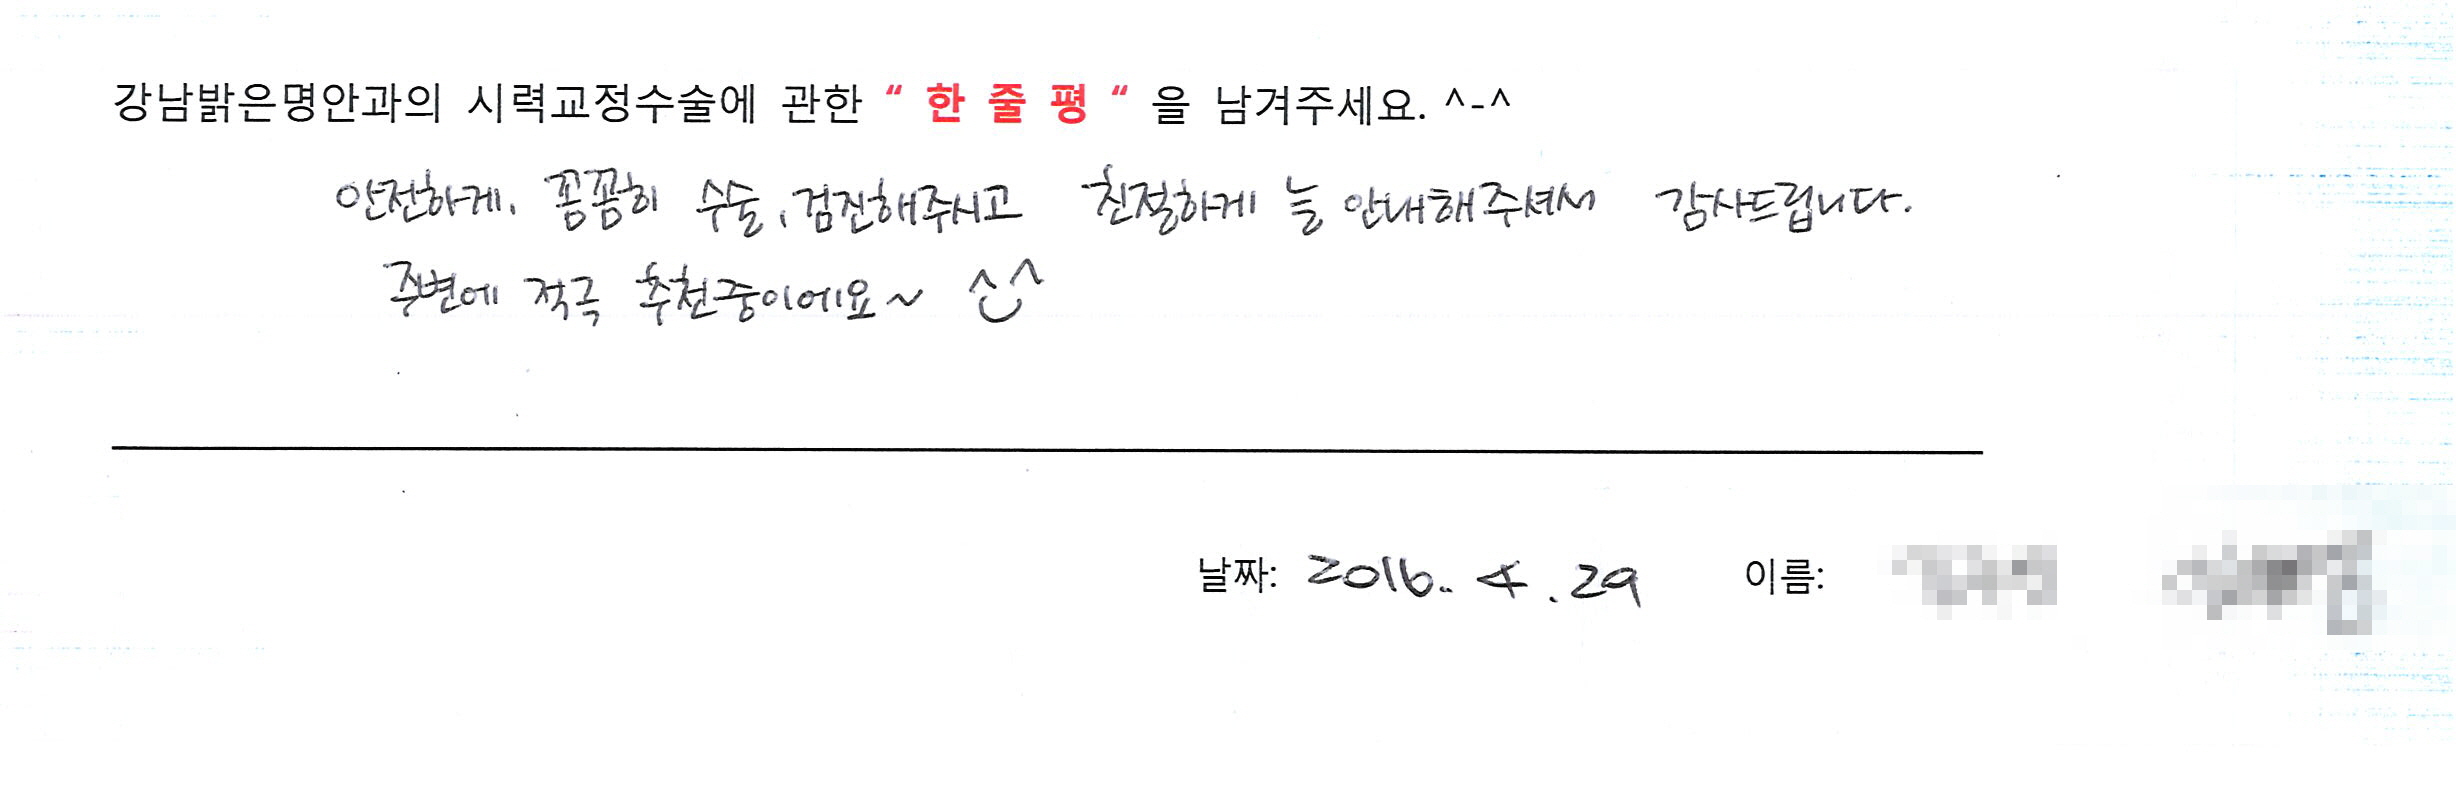 강남밝은명안과의 시력교정수술에 관한 “ 한 줄 평 “ 을 남겨주세요. ^-^
안전하게, 꼼꼼히 수술, 검진해주시고 친절하게 늘 안내해주셔서 감사드립니다.
주변에 적극 추천중이에요~ ^^
날짜: 2016. 4. 29 이름: